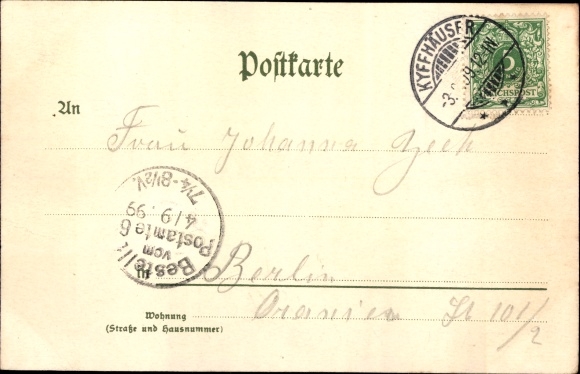 Postkarte
KYFFHÄUSER
12-1N
5
REICHSPOST
An
Frau Johanna Zech
Bestellt
vom
Postamte 6
4/9.99
7¼-8½V.
in Berlin
Oranien St 101/2
Wohnung
(Straße und Hausnummer)